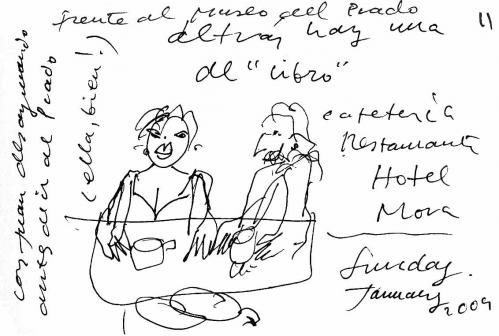 frente al Museo del Prado
detrás hay una
de "libro"
11
cafetería
Restaurante
Hotel
Mora
Sunday.
January 2009
con Juan desayunando
antes de ir al Prado
(ella, bien!)